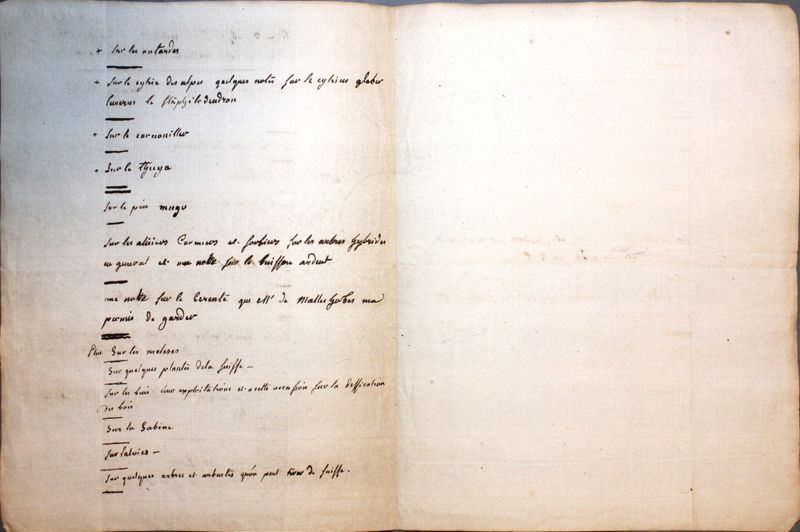 + Sur les outardes
+ Sur le cytise des alpes quelques notes sur le cytise glaber
le Staphilodendron
+ Sur le cornouiller
+ Sur le thuya
Sur le pin mugo
Sur les alisiers Cormiers et Sorbiers sur les arbres hybrides
en general et une note sur le buisson ardent
une note sur le que Mr de Malesherbes ma
permis de garder
Plus Sur les melezes
Sur quelques plantes dela suisse -
Sur les bois leur exploitations et a cette occasion sur la dessication
des bois
Sur la Sabine
Sur
Sur quelques arbres et arbustes qu'on peut tirer de suisse.